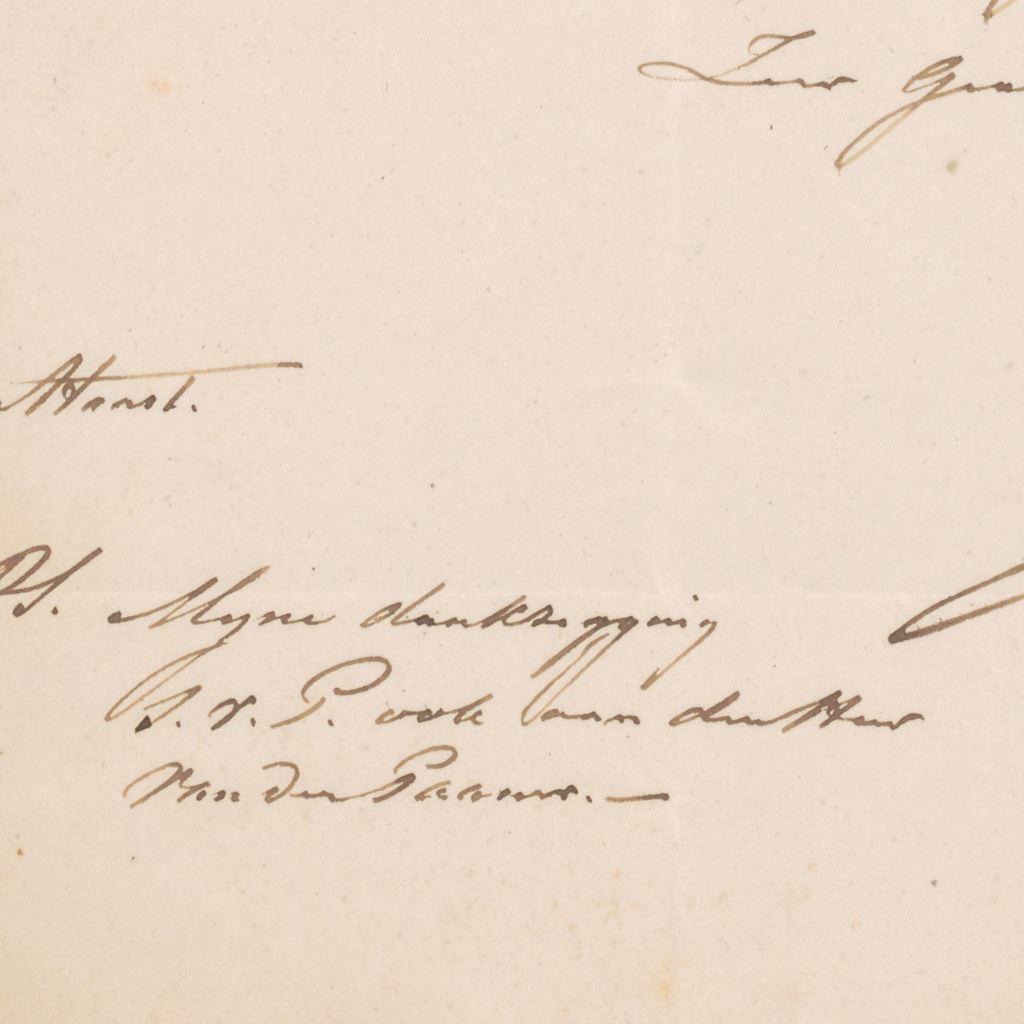 Zeer
Haast.
PS. Myne dankzegging
s.v.P. ook aan den Heer
van der Paauw. —